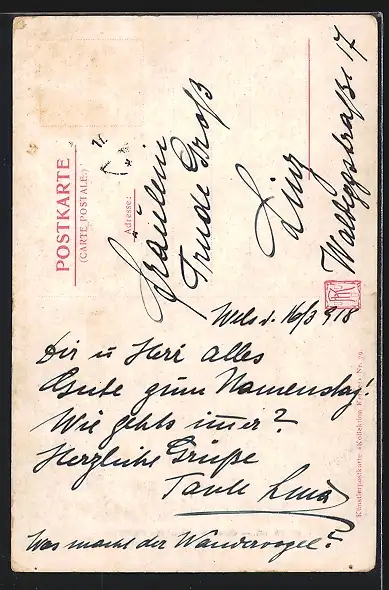 POSTKARTE
(CARTE POSTALE.)
Adresse:
Fräulein
Trude Groß
Linz
Walteggstraße 17
Wels d. 16/3 918
Dir u Heri alles
Gute zum Namenstag!
Wie gehts immer?
Herzliche Grüße
Tante Lina
Was macht der Wandervogel?
Künstlerpostkarte «Kollektion Nr. 79